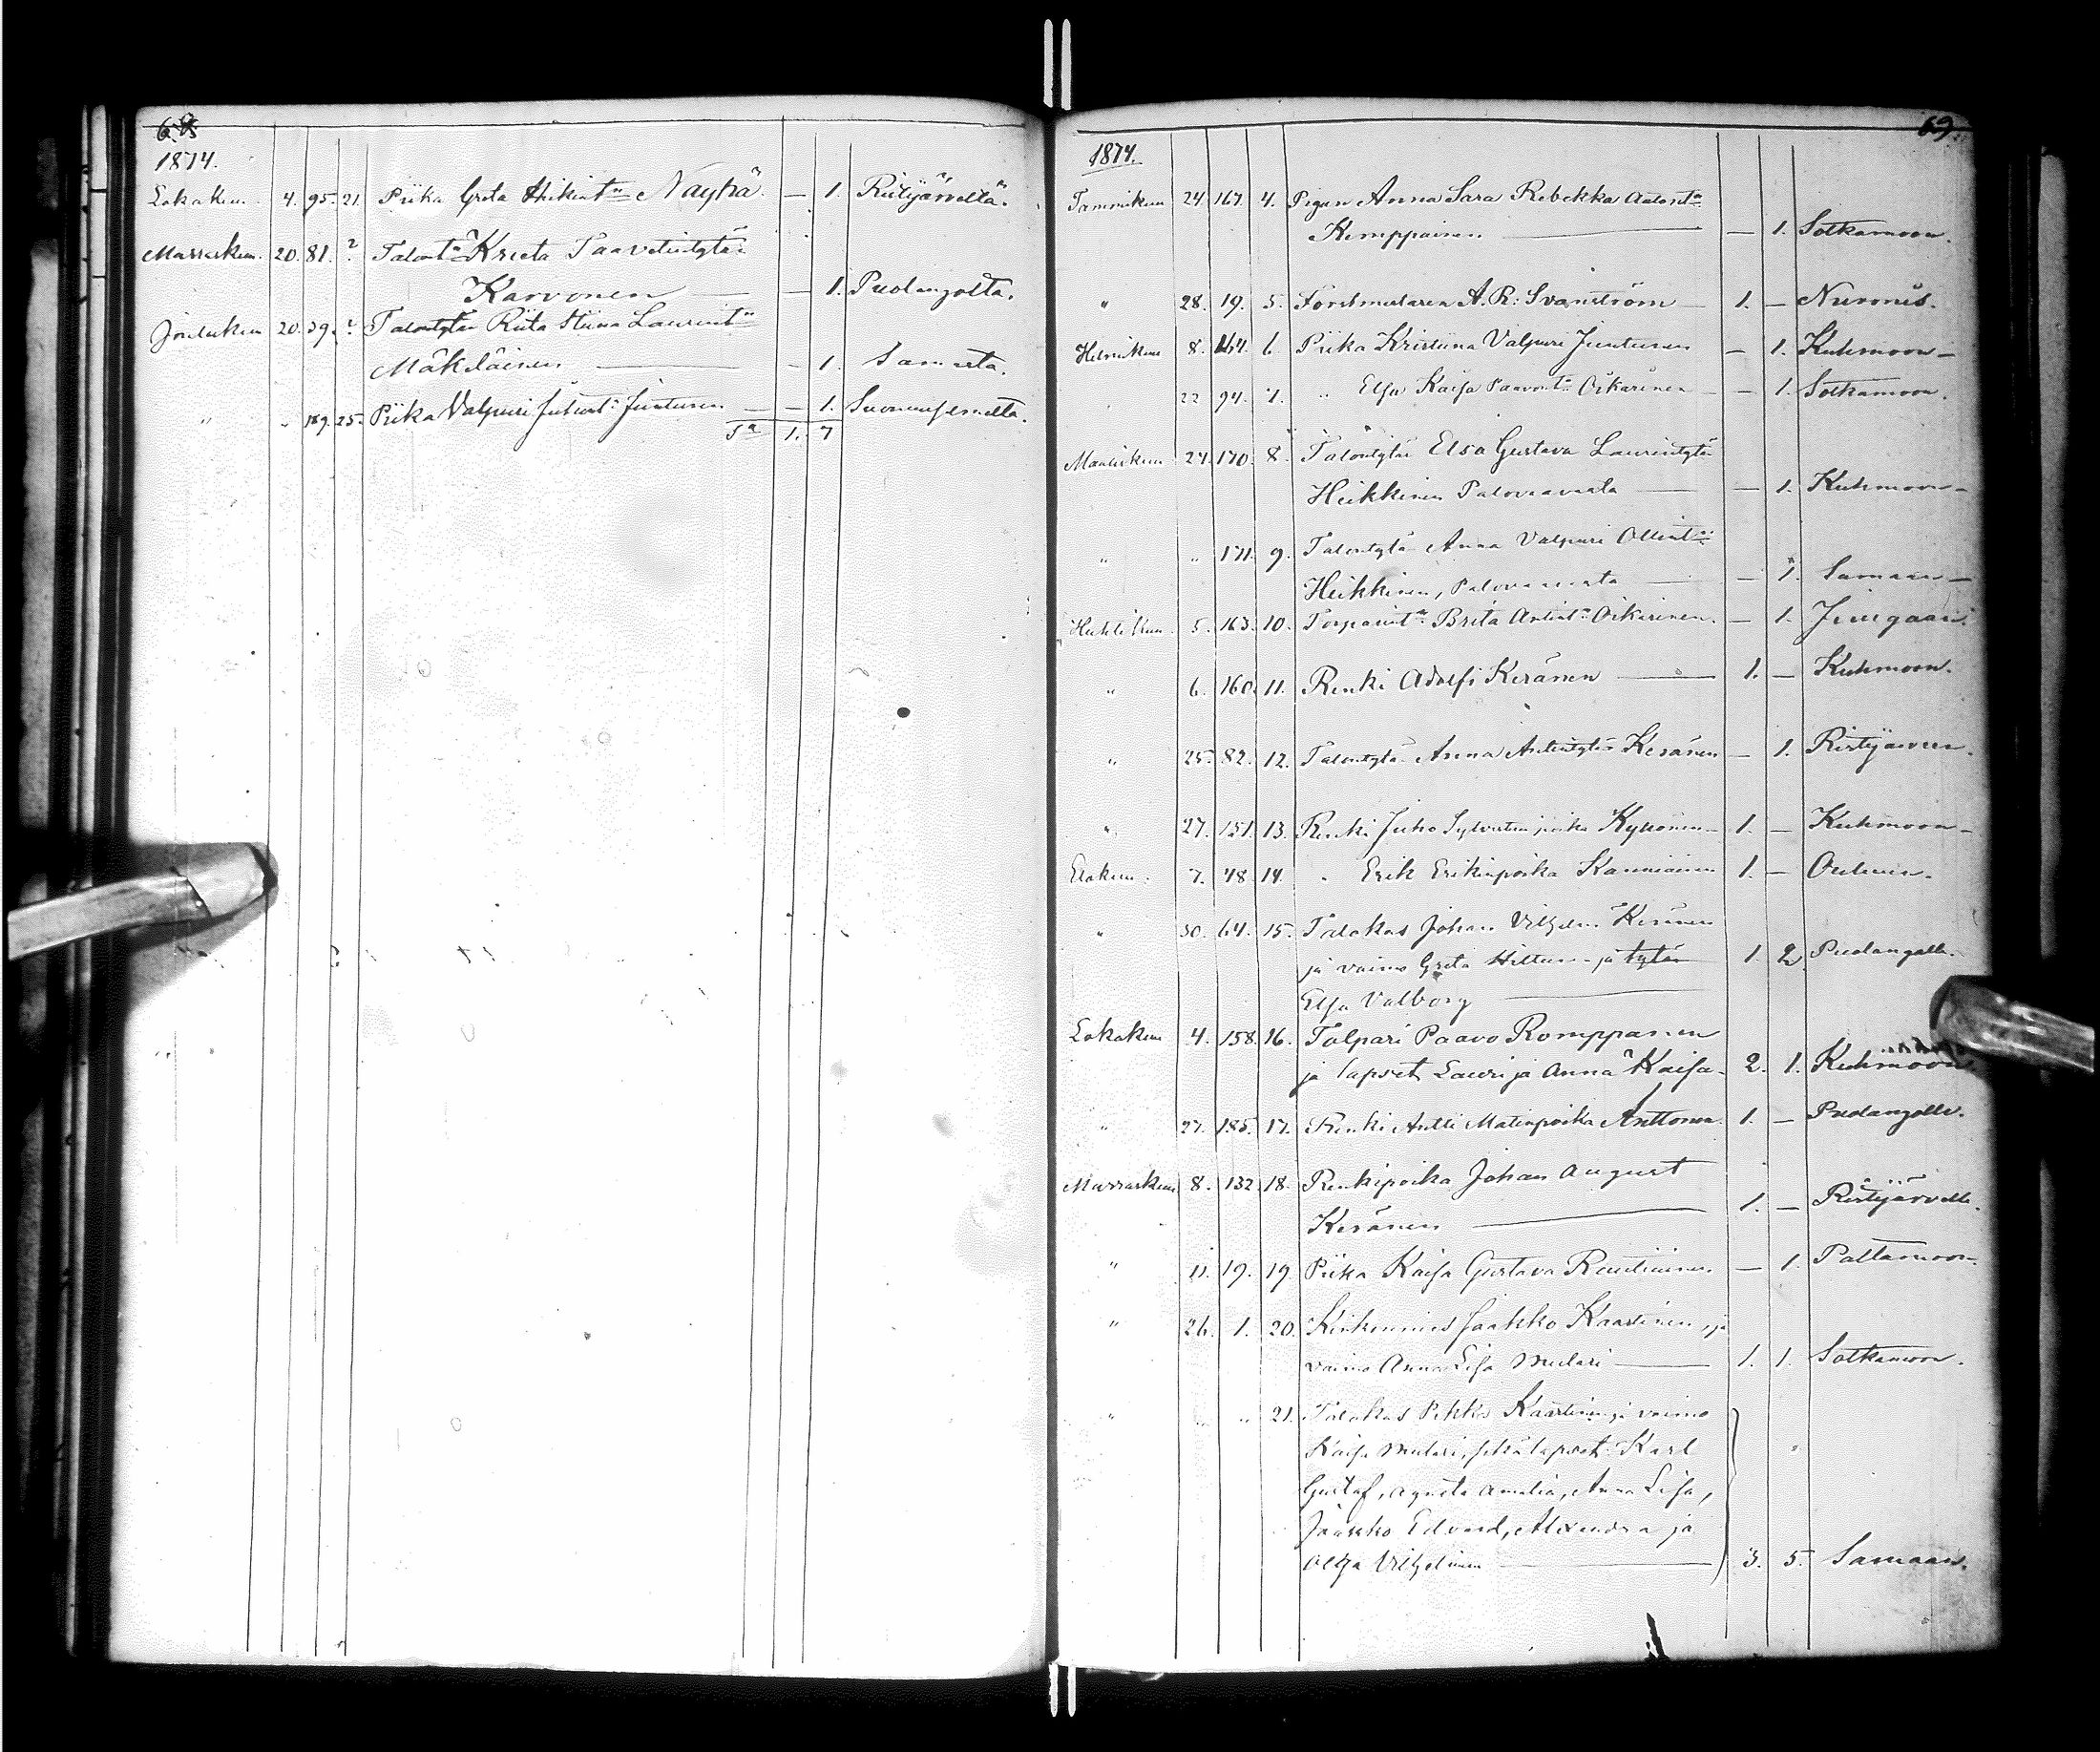 68.
1874.
Lokakuu. 4. 95. 21. Piika Greta Heikint:r Näyhä — 1. Ristijärveltä.
Marrask. 20. 81. ? Talont:r Kreeta Taavetintytär
Karvonen — — 1. Puolangolta.
Joulukuu 20. 39. ? Talontytär Riita Stiina Laurint:r
Mäkeläinen — — 1. Samasta.
" " 189. 25. Piika Valpuri Juhont:r Juntunen — — 1. Suomusjärveltä.
S:a 1. 7
69.
1874.
Tammikuu 24. 167. 4. Pigan Anna Sara Rebekka Adamt:r
Kemppainen — — 1. Sotkamoon.
" 28. 19. 5. Forstmestaren A. R. Svanström — 1. — Nurmis.
Helmikuu 8. 164. 6. Piika Kristiina Valpuri Juntunen — 1. Kuhmoon —
22. 94. 7. " Elsa Kaisa Paavont:r Oikarinen — — 1. Sotkamoon.
Maaliskuu 27. 170. 8. Talontytär Elsa Gustava Laurintytär
Heikkinen Palovaarata — — 1. Kuhmoon —
" " 171. 9. Talontytär Anna Valpuri Ollint:r
Heikkinen, Palovaarata — — 1. Samaan —
Huhtikuu 5. 163. 10. Torparint:r Brita Antint:r Oikarinen. — 1.
" 6. 160. 11. Renki Adolfi Keränen — 1. — Kuhmoon.
" 25. 82. 12. Talontytär Anna Antintytär Keränen — 1. Ristijärveen.
" 27. 151. 13. Renki Juho Sylvesterinpoika Kyllönen — 1. — Kuhmoon —
Elokuu. 7. 48. 14. " Erik Erikinpoika Kanniainen 1. — Ouluun.
" 30. 64. 15. Talokas Johan Vilhelm Keränen
ja vaimo Greta Hiltunen ja tytär 1. 2. Puolangalle.
Elsa Valborg —
Lokakuu 4. 158. 16. Talpari Paavo Romppanen
ja lapset Lauri ja Anna Kaisa. 2. 1. Kuhmoon.
" 27. 185. 17. Renki Antti Matinpoika Anttonen. 1. — Puolangalle.
Marraskuu 8. 132. 18. Renkipoika Johan August
Keränen — 1. — Ristijärvelle.
" 11. 19. 19. Piika Kaisa Gustava Rautiainen — 1. Paltamoon.
" 26. 1. 20. Jaakko Kaartinen, ja
vaimo Anna Lisa Mulari — 1. 1. Sotkamoon.
" " " 21. Talokas Pekka Kaartinen ja vaimo
Kaisa Mulari, sekä lapset: Karl
Gustaf, Agneta Amalia, Anna Lisa,
Jaakko Edvard, Alexandra ja
Olga Vilhelmina — 3. 5. Samaan.